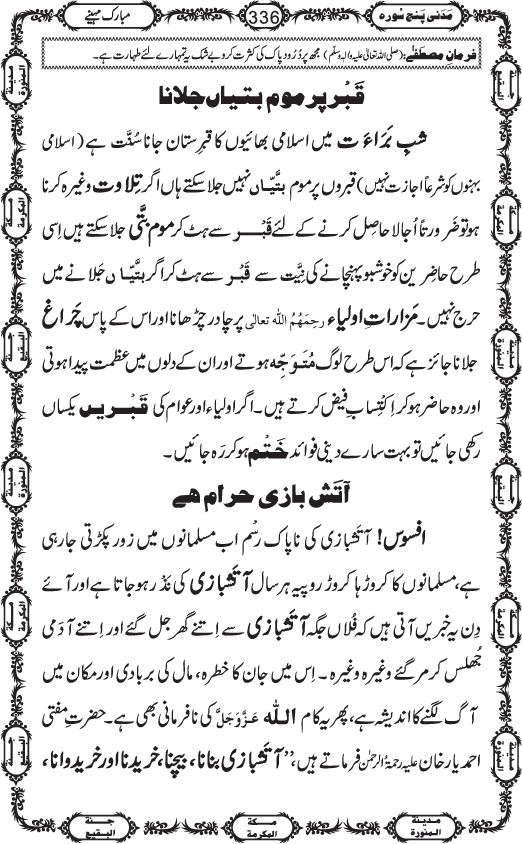 مَدَنی پنج سُورہ 336 مبارک مہینے
فرمانِ مصطفٰے: (صلی اللہ تعالیٰ علیہ والہ وسلم) مجھ پر دُرُود پاک کی کثرت کرو بے شک یہ تمہارے لئے طہارت ہے۔
قَبْر پر موم بتیاں جلانا
شبِ بَرَاءَت میں اسلامی بھائیوں کا قبرِستان جانا سنّت ہے (اسلامی
بہنوں کو شرعاً اجازت نہیں) قبروں پر موم بتّیاں نہیں جلا سکتے ہاں اگر تِلاوت وغیرہ کرنا
ہو تو ضَرورتاً اُجالا حاصِل کرنے کے لئے قَبْر سے ہٹ کر موم بتّی جلا سکتے ہیں اِسی
طرح حاضِرین کو خوشبو پہنچانے کی نیّت سے قَبْر سے ہٹ کر اگر بتّیاں جَلانے میں
حرج نہیں۔ مَزاراتِ اولیاء رحِمَہُمُ اللہ تعالٰی پر چادر چڑھانا اور اس کے پاس چَراغ
جلانا جائز ہے کہ اس طرح لوگ مُتَوَجِّہ ہوتے اور ان کے دلوں میں عظمت پیدا ہوتی
اور وہ حاضر ہو کر اِکتِسابِ فیض کرتے ہیں۔ اگر اولیاء اور عوام کی قَبْریں یکساں
رکھی جائیں تو بہت سارے دینی فوائد خَتْم ہو کر رہ جائیں۔
آتَش بازی حرام ہے
افسوس! آتَشبازی کی ناپاک رَسْم اب مسلمانوں میں زور پکڑتی جارہی
ہے، مسلمانوں کا کروڑہا کروڑ روپیہ ہر سال آتَشبازی کی نَذْر ہو جاتا ہے اور آئے
دِن یہ خبریں آتی ہیں کہ فُلاں جگہ آتَشبازی سے اِتنے گھر جل گئے اور اِتنے آدَمی
جُھلس کر مر گئے وغیرہ وغیرہ۔ اِس میں جان کا خطرہ، مال کی بربادی اور مکان میں
آگ لگنے کا اندیشہ ہے، پھر یہ کام اللہ عَزَّوَجَلَّ کی نافرمانی بھی ہے۔ حضرتِ مفتی
احمد یار خان علیہ رحمۃ الرحمٰن فرماتے ہیں، ’’آتَشبازی بنانا، بیچنا، خریدنا اور خریدوانا،
مدینة المنورة
جنة البقیع
مکة المکرمة
مکة المکرمة
جنة البقیع
مدینة المنورة
مدینة المنورة
جنة البقیع
مکة المکرمة
مکة المکرمة
جنة البقیع
مدینة المنورة
جنة البقیع
مکة المکرمة
مدینة المنورة